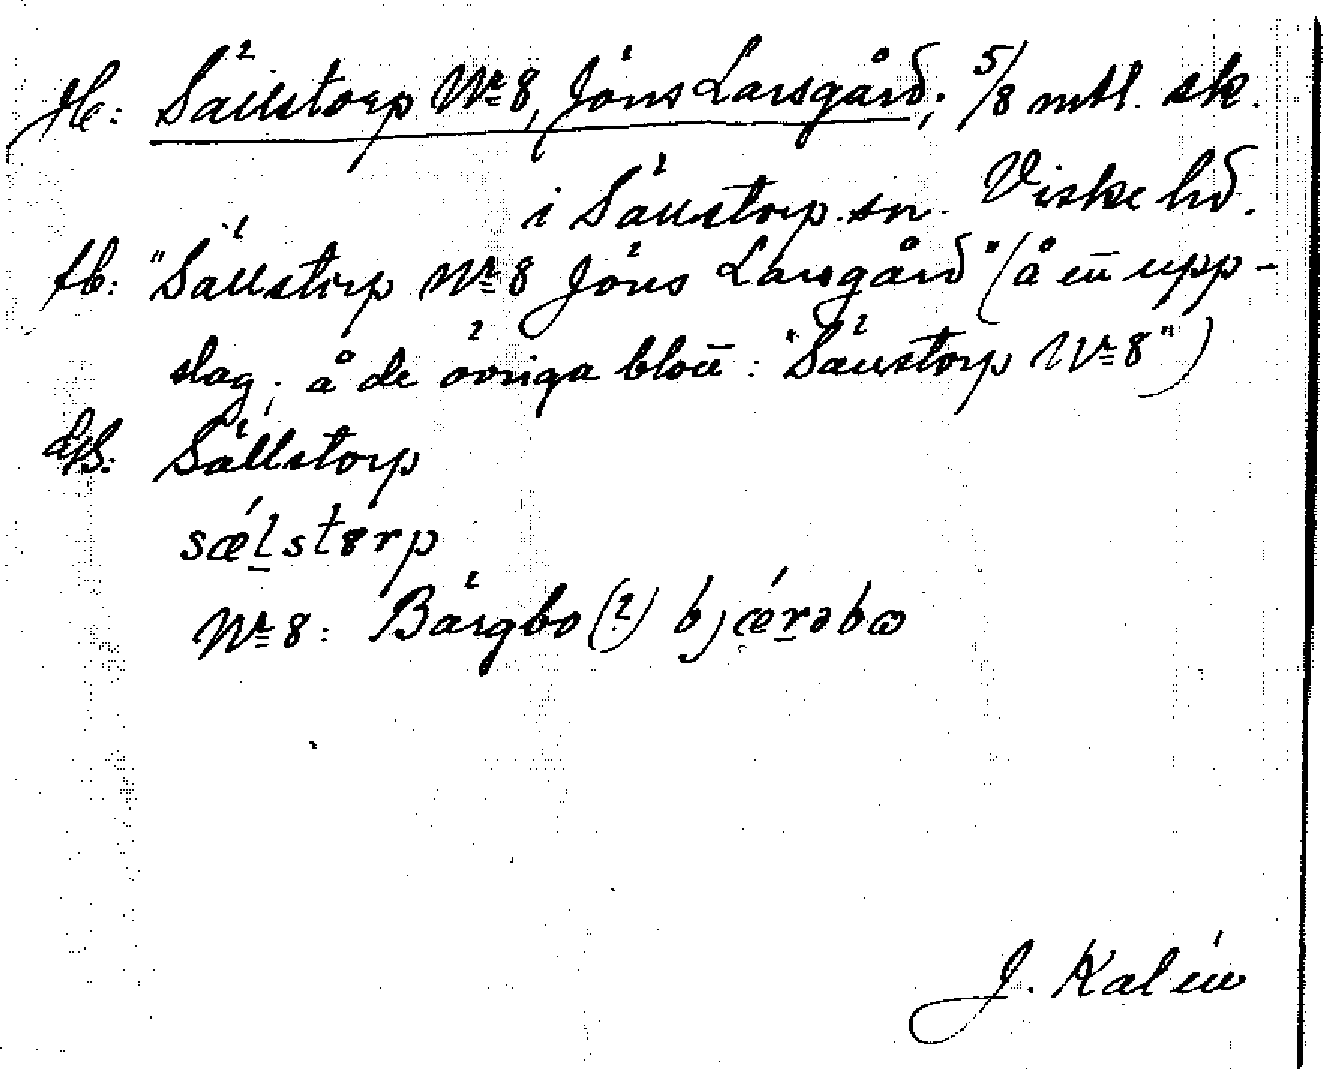 Hc: Sällstorp Nr 8, Jöns Larsgård; 5/8 mtl. sk.
i Sällstorp sn. Viske hd.
fb: "Sällstorp Nr 8 Jöns Larsgård" (å ett upp-
slag; å de övriga blott: "Sällstorp Nr 8")
Sällstorp
sǽlstɵrp
Nr 8: Bärgbo (?) bjǽrəbɷ
J. Kalén